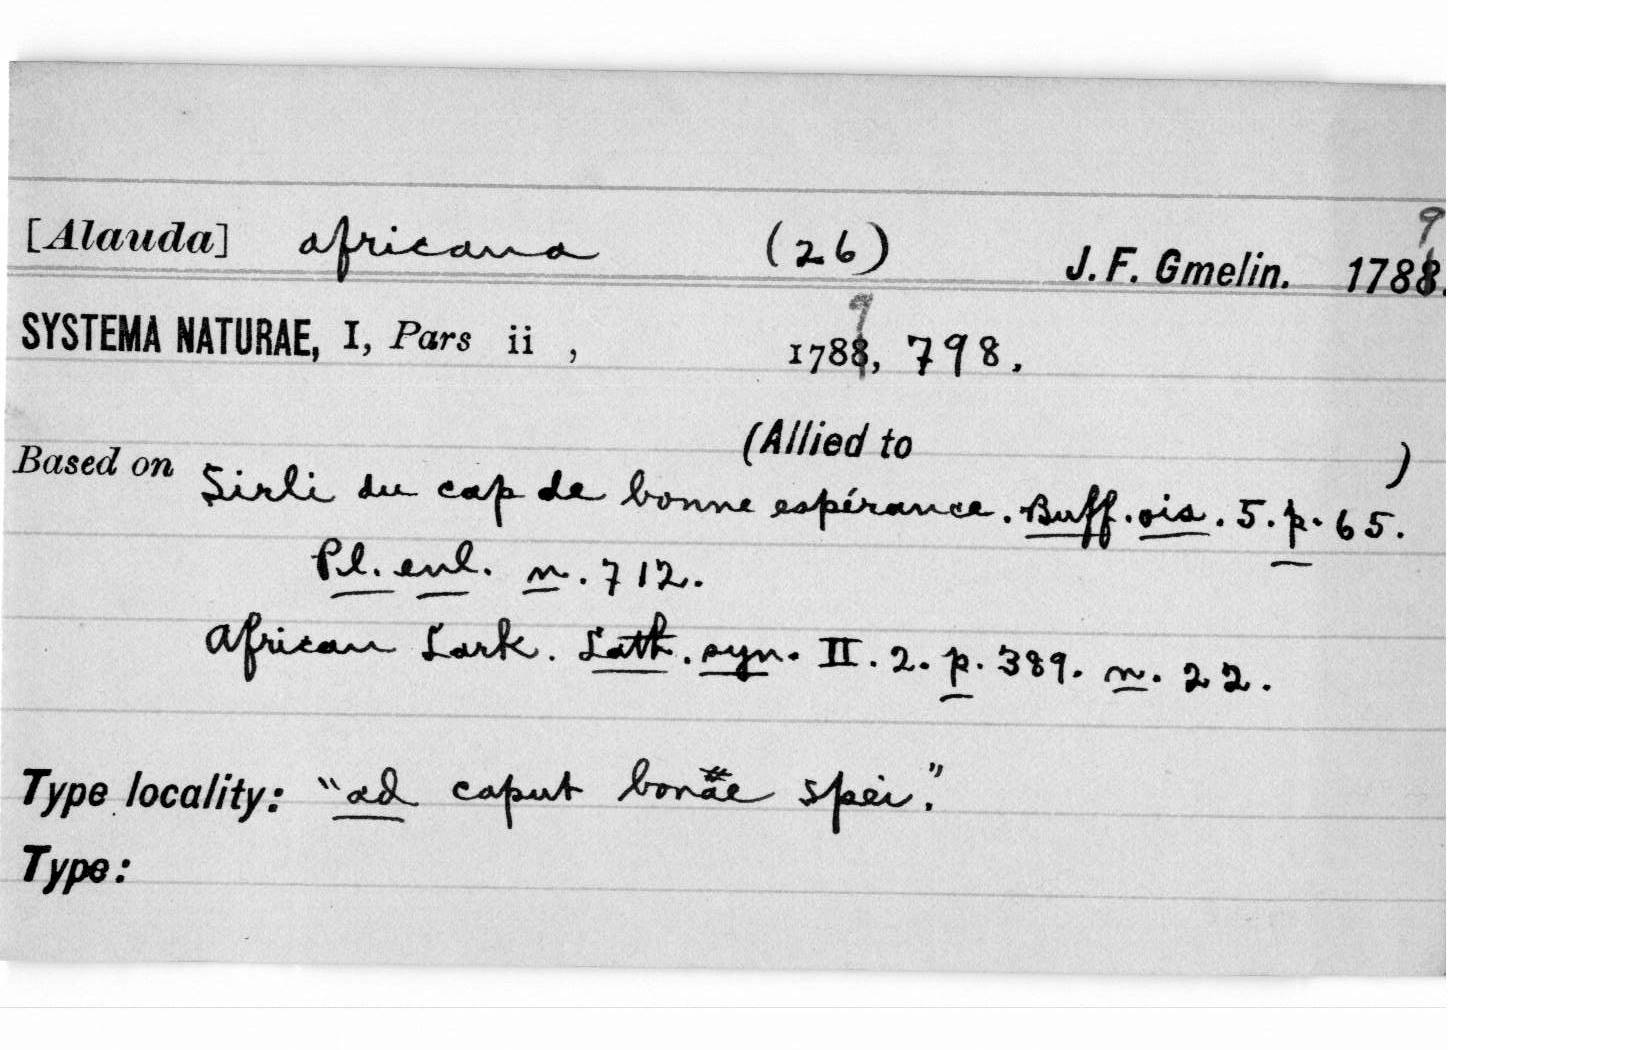 [Alauda] africana (26) J. F. Gmelin. 1789.
SYSTEMA NATURAE, I, Pars ii , 1789, 798.
(Allied to )
Based on Sirli du cap de bonne espérance. Buff. ois. 5. p. 65.
Pl. enl. n. 712.
African Lark. Lath. syn. II. 2. p. 389. n. 22.
Type locality: "ad caput bonae spei."
Type: